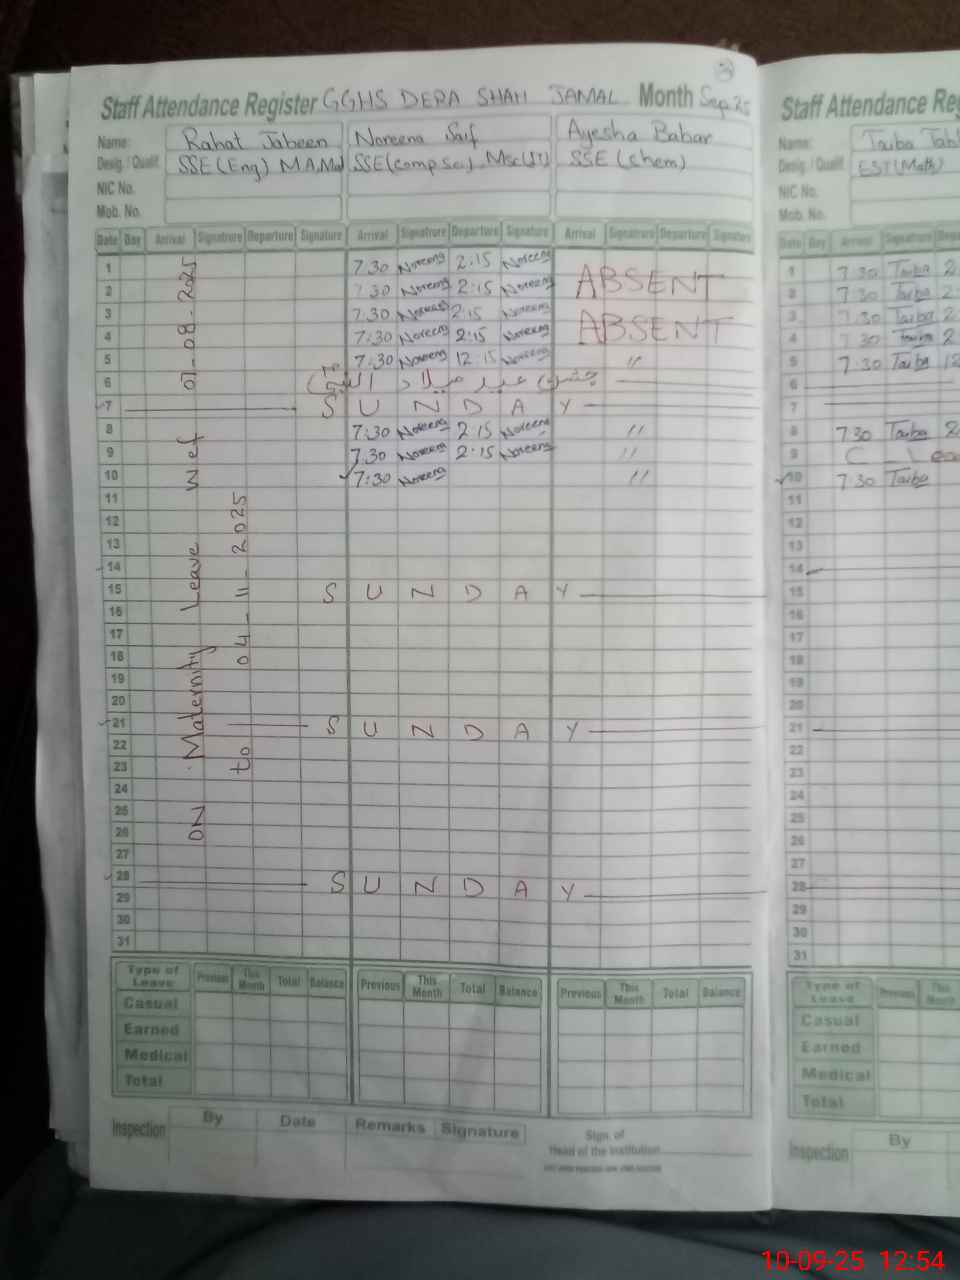 3
Staff Attendance Register GGHS DERA SHAH JAMAL Month Sep.25
Name: Rahat Jabeen Noreena Saif Ayesha Babar
Desig. / Qualif. SSE(Eng) MA, SSE(comp.sci) SSE (chem)
NIC No.
Mob. No.
Date Day Arrival Signatrure Departure Signature Arrival Signatrure Departure Signature Arrival Signatrure Departure Signature
1 7:30 Noreena 2:15 Noreena
2 7:30 Noreena 2:15 Noreena ABSENT
3 7:30 Noreena 2:15 Noreena
4 7:30 Noreena 2:15 Noreena ABSENT
5 7:30 Noreena 12:15 Noreena "
6 جشن عید میلاد النبی
7 SUNDAY
8 7:30 Noreena 2:15 Noreena "
9 7:30 Noreena 2:15 Noreena "
10 7:30 Noreena "
11
12
13
14
15 SUNDAY
16
17
18
19
20
21 SUNDAY
22
23
24
25
26
27
28 SUNDAY
29
30
31
ON Maternity Leave wef 07-08-2025
to 04-11-2025
Type of Leave Previous This Month Total Balance Previous This Month Total Balance Previous This Month Total Balance
Casual
Earned
Medical
Total
Inspection By Date Remarks Signature
Sign. of
Head of the Institution
Staff Attendance Reg
Name: Taiba
Desig. / Qualif. EST(Math)
NIC No.
Mob. No.
Date Day Arrival Signatrure Depa
1 7:30 Taiba 2
2 7:30 Taiba 2
3 7:30 Taiba 2
4 7:30 Taiba 2
5 7:30 Taiba 12
6
7
8 7:30 Taiba 2
9 C Lea
10 7:30 Taiba
11
12
13
14
15
16
17
18
19
20
21
22
23
24
25
26
27
28
29
30
31
Type of Leave Previous This Month
Casual
Earned
Medical
Total
Inspection By
10-09-25 12:54